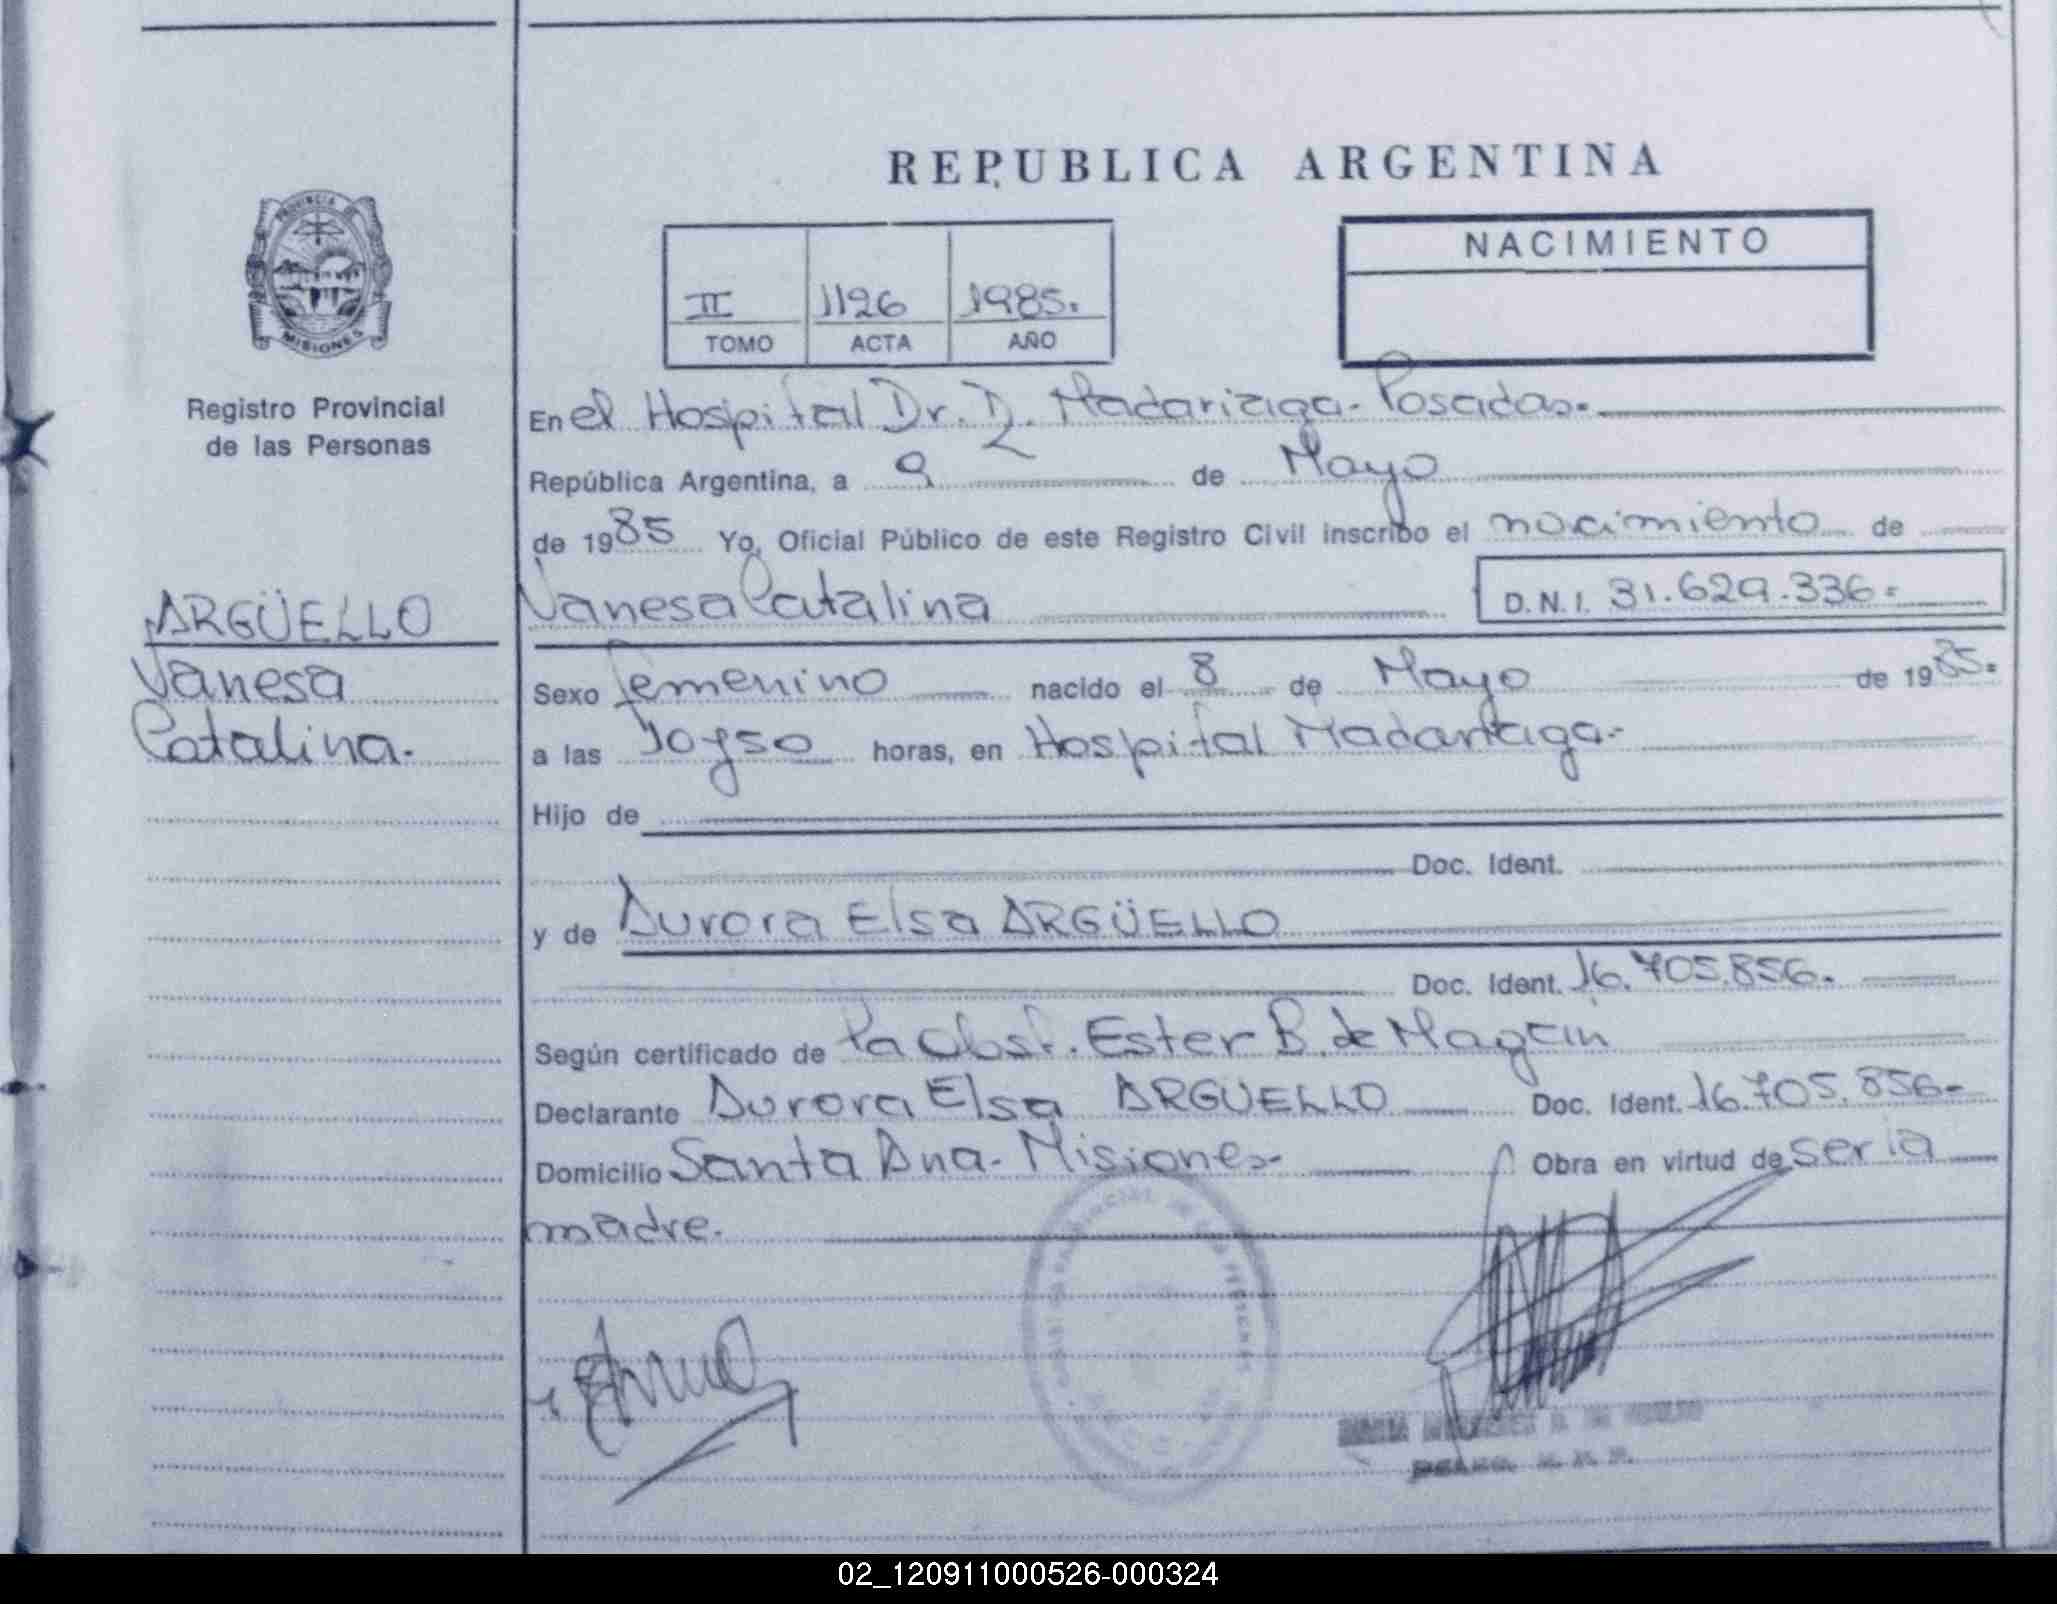 REPUBLICA ARGENTINA
PROVINCIA DE
MISIONES
Registro Provincial
de las Personas
II 1126 1985.
TOMO ACTA AÑO
NACIMIENTO
En el Hospital Dr. R. Madariaga- Posadas.
República Argentina, a 9 de Mayo
de 1985 Yo, Oficial Público de este Registro Civil inscribo el nacimiento de
ARGÜELLO
Vanesa
Catalina.
Vanesa Catalina D.N.I. 31.629.336.
Sexo femenino nacido el 8 de Mayo de 1985.
a las 10y50 horas, en Hospital Madariaga.
Hijo de
Doc. Ident.
y de Aurora Elsa ARGÜELLO
Doc. Ident. 16.705.856.
Según certificado de la Obst. Ester B. de
Declarante Aurora Elsa ARGÜELLO Doc. Ident. 16.705.856-
Domicilio Santa Ana- Misiones- Obra en virtud de ser la
madre.
02_120911000526-000324